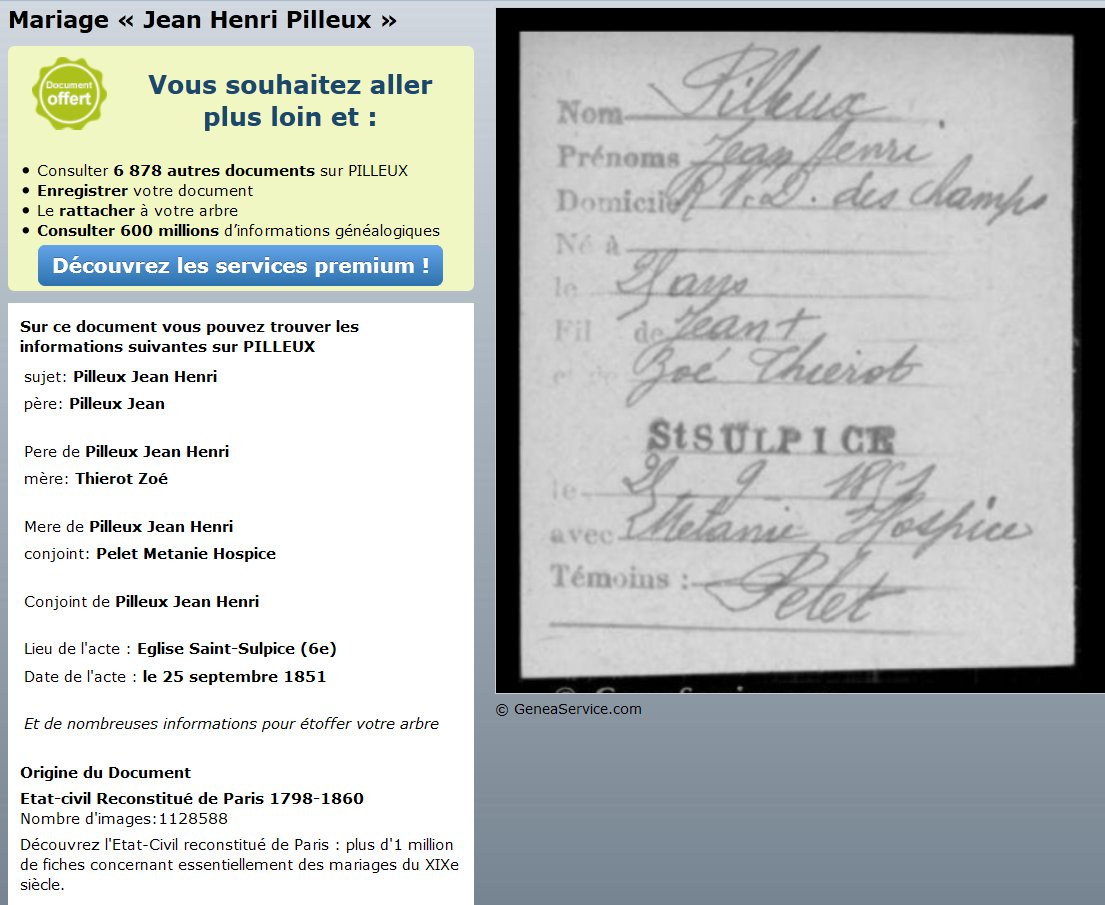 Mariage « Jean Henri Pilleux »
Document
offert
Vous souhaitez aller
plus loin et :
• Consulter 6 878 autres documents sur PILLEUX
• Enregistrer votre document
• Le rattacher à votre arbre
• Consulter 600 millions d’informations généalogiques
Découvrez les services premium !
Sur ce document vous pouvez trouver les
informations suivantes sur PILLEUX
sujet: Pilleux Jean Henri
père: Pilleux Jean
Pere de Pilleux Jean Henri
mère: Thierot Zoé
Mere de Pilleux Jean Henri
conjoint: Pelet Metanie Hospice
Conjoint de Pilleux Jean Henri
Lieu de l'acte : Eglise Saint-Sulpice (6e)
Date de l'acte : le 25 septembre 1851
Et de nombreuses informations pour étoffer votre arbre
Origine du Document
Etat-civil Reconstitué de Paris 1798-1860
Nombre d'images:1128588
Découvrez l'Etat-Civil reconstitué de Paris : plus d'1 million
de fiches concernant essentiellement des mariages du XIXe
siècle.
Nom Pilleux
Prénoms Jean Henri
Domicile R N.D. des champs
Né à
le ans
Fil de Jean +
et de Zoé Thierot
St SULPICE
le 25 9 1851
avec Metanie Hospice
Témoins : Pelet
© GeneaService.com